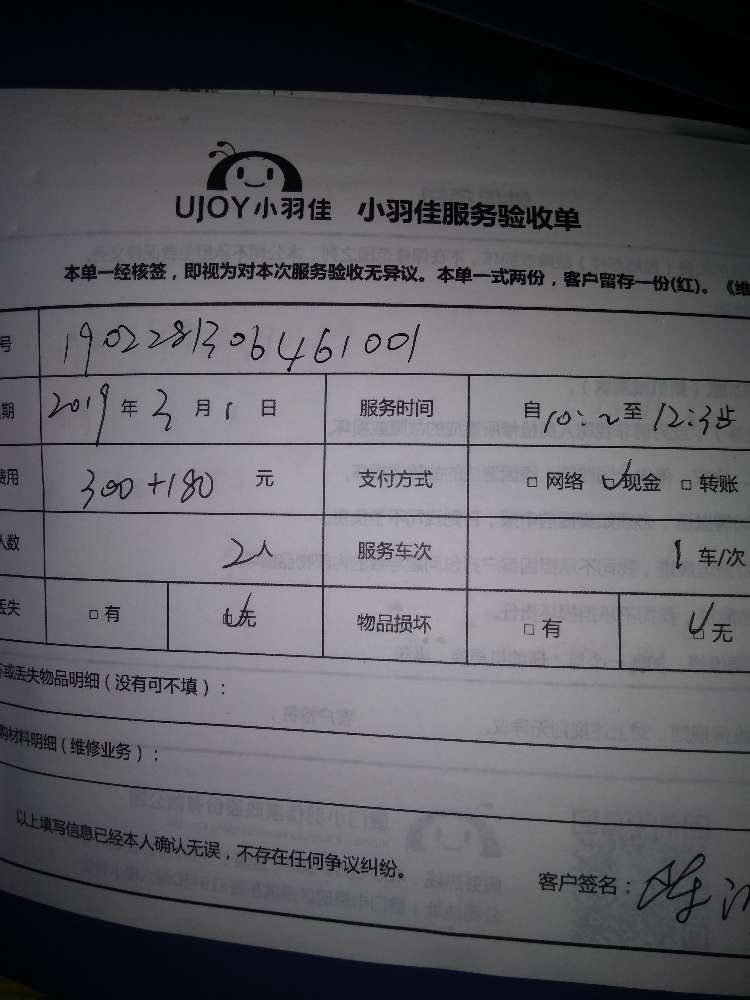 UJOY小羽佳 小羽佳服务验收单
本单一经核签，即视为对本次服务验收无异议。本单一式两份，客户留存一份(红)。《维
号 190228130646 1001
期 2019 年 3 月 1 日 服务时间 自 10: 至 12:
费用 300+180 元 支付方式 □ 网络 □ 现金 □ 转账
人数 2人 服务车次 1 车/次
丢失 □ 有 □ 无 物品损坏 □ 有 □ 无
或丢失物品明细（没有可不填）：
购材料明细（维修业务）：
以上填写信息已经本人确认无误，不存在任何争议纠纷。
客户签名：陈